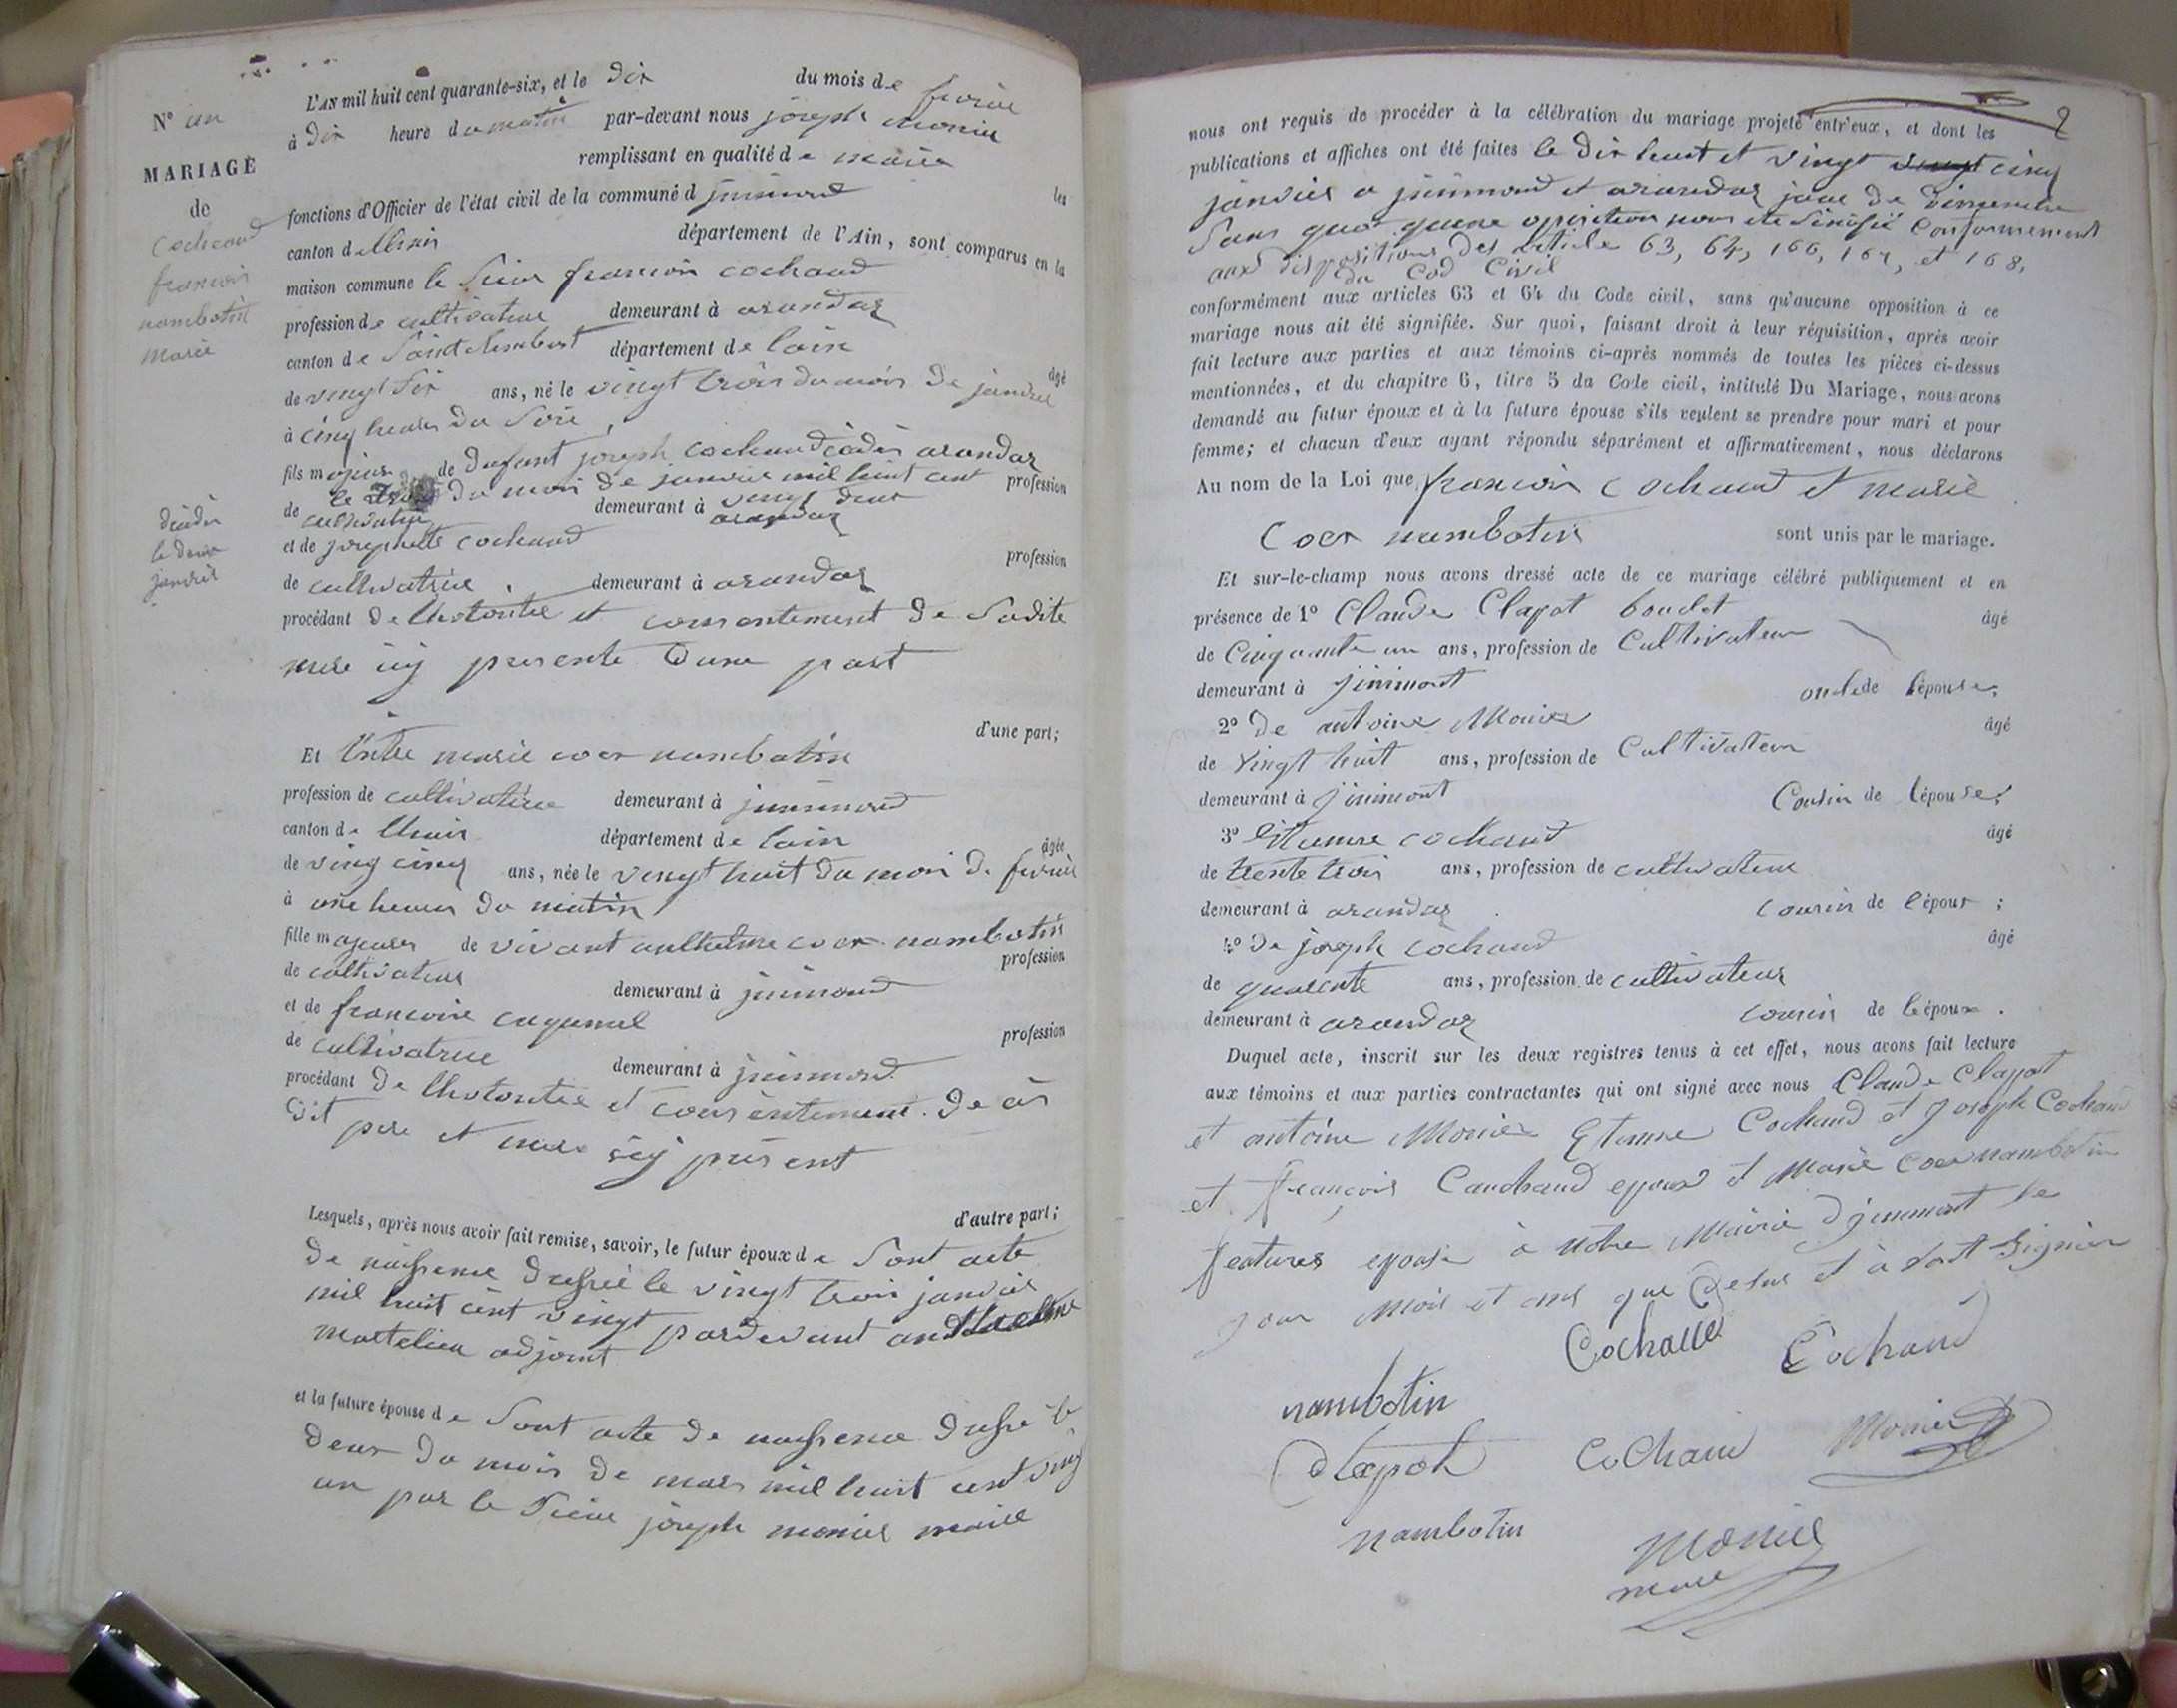 N° un
MARIAGE
de
Cochaud
francois
nambotin
marie
L'AN mil huit cent quarante-six, et le dix du mois de fevrier
à dix heure du matin par-devant nous joseph monier
remplissant en qualité de maire les
fonctions d'Officier de l'état civil de la commune d jnimond
canton de lhuis département de l'Ain, sont comparus en la
maison commune le sieur francois cochaud
profession de cultivateur demeurant à arandas
canton de Saint rambert département de lain âgé
de vingt six ans, né le vingt trois du mois de janvier
à cinq heures du soire
fils majeur de defunt joseph cochaud décédé arandas
le du mois de janvier mil huit cent vingt deux profession
de cultivateur demeurant à arandas
décédé
le deux
janvier
et de josephette cochaud profession
de cultivatrice demeurant à arandas
procédant de lhotoritee et consentement de sadite
mere icy presente dune part
d'une part;
Et marie coer nambotin
profession de cultivatrice demeurant à jnimond
canton de lhuis département de lain âgée
de ving cinq ans, née le vingt huit du mois de fevrier
à une heures du matin
fille majeure de vivant anthelme coer nambotin profession
de cultivateur demeurant à jnimond
et de francoise profession
de cultivatrice demeurant à jnimond
procédant de lhotoritee et consentement de ces
dit pere et mere icy present
d'autre part;
Lesquels, après nous avoir fait remise, savoir, le futur époux de sont acte
de naissence dressée le vingt trois janvier
mil huit cent vingt pardevant anthelme
martelin adjoint
et la future épouse de sont acte de naissence dressé le
deux du mois de mars mil huit cent ving
un par le sieur joseph monier maire
2
nous ont requis de procéder à la célébration du mariage projeté entr'eux, et dont les
publications et affiches ont été faites le dix huit et vingt vingt cinq
janvier a jnimond et arandas jour de dimenche
sans quoi quune opposition nous ete sinifié conformement
aux dispositions des article 63, 64, 166, 167, et 168,
du Cod Civil
conformément aux articles 63 et 64 du Code civil, sans qu'aucune opposition à ce
mariage nous ait été signifiée. Sur quoi, faisant droit à leur réquisition, après avoir
fait lecture aux parties et aux témoins ci-après nommés de toutes les pièces ci-dessus
mentionnées, et du chapitre 6, titre 5 du Code civil, intitulé Du Mariage, nous avons
demandé au futur époux et à la future épouse s'ils veulent se prendre pour mari et pour
femme; et chacun d'eux ayant répondu séparément et affirmativement, nous déclarons
Au nom de la Loi que francois cochaud et marie
Coer nambotin sont unis par le mariage.
Et sur-le-champ nous avons dressé acte de ce mariage célébré publiquement et en
présence de 1° Claude Clapot boudot âgé
de Cinquante un ans, profession de Cultivateur
demeurant à jinimont oncle de lépouse,
2° de antoine Monier âgé
de vingt huit ans, profession de Cultivateur
demeurant à jinimont Cousin de lépouse;
3° Etienne cochaud âgé
de trente trois ans, profession de cultivateur
demeurant à arandas cousin de lépoux ;
4° de joseph cochaud âgé
de quarente ans, profession de cultivateur
demeurant à arandas cousin de lépoux .
Duquel acte, inscrit sur les deux registres tenus à cet effet, nous avons fait lecture
aux témoins et aux parties contractantes qui ont signé avec nous Claude Clapot
et antoine Monier Etienne Cochaud et Joseph Cochaud
et françois Cauchaud epoux et Marie Coer nambotin
features epouse à notre Mairie djnimont le
jour mois et ans que desus et à sont Signier
Cochaud Cochaud
nambotin
Clapot Cochaud Monier
nambotin Monier
maire